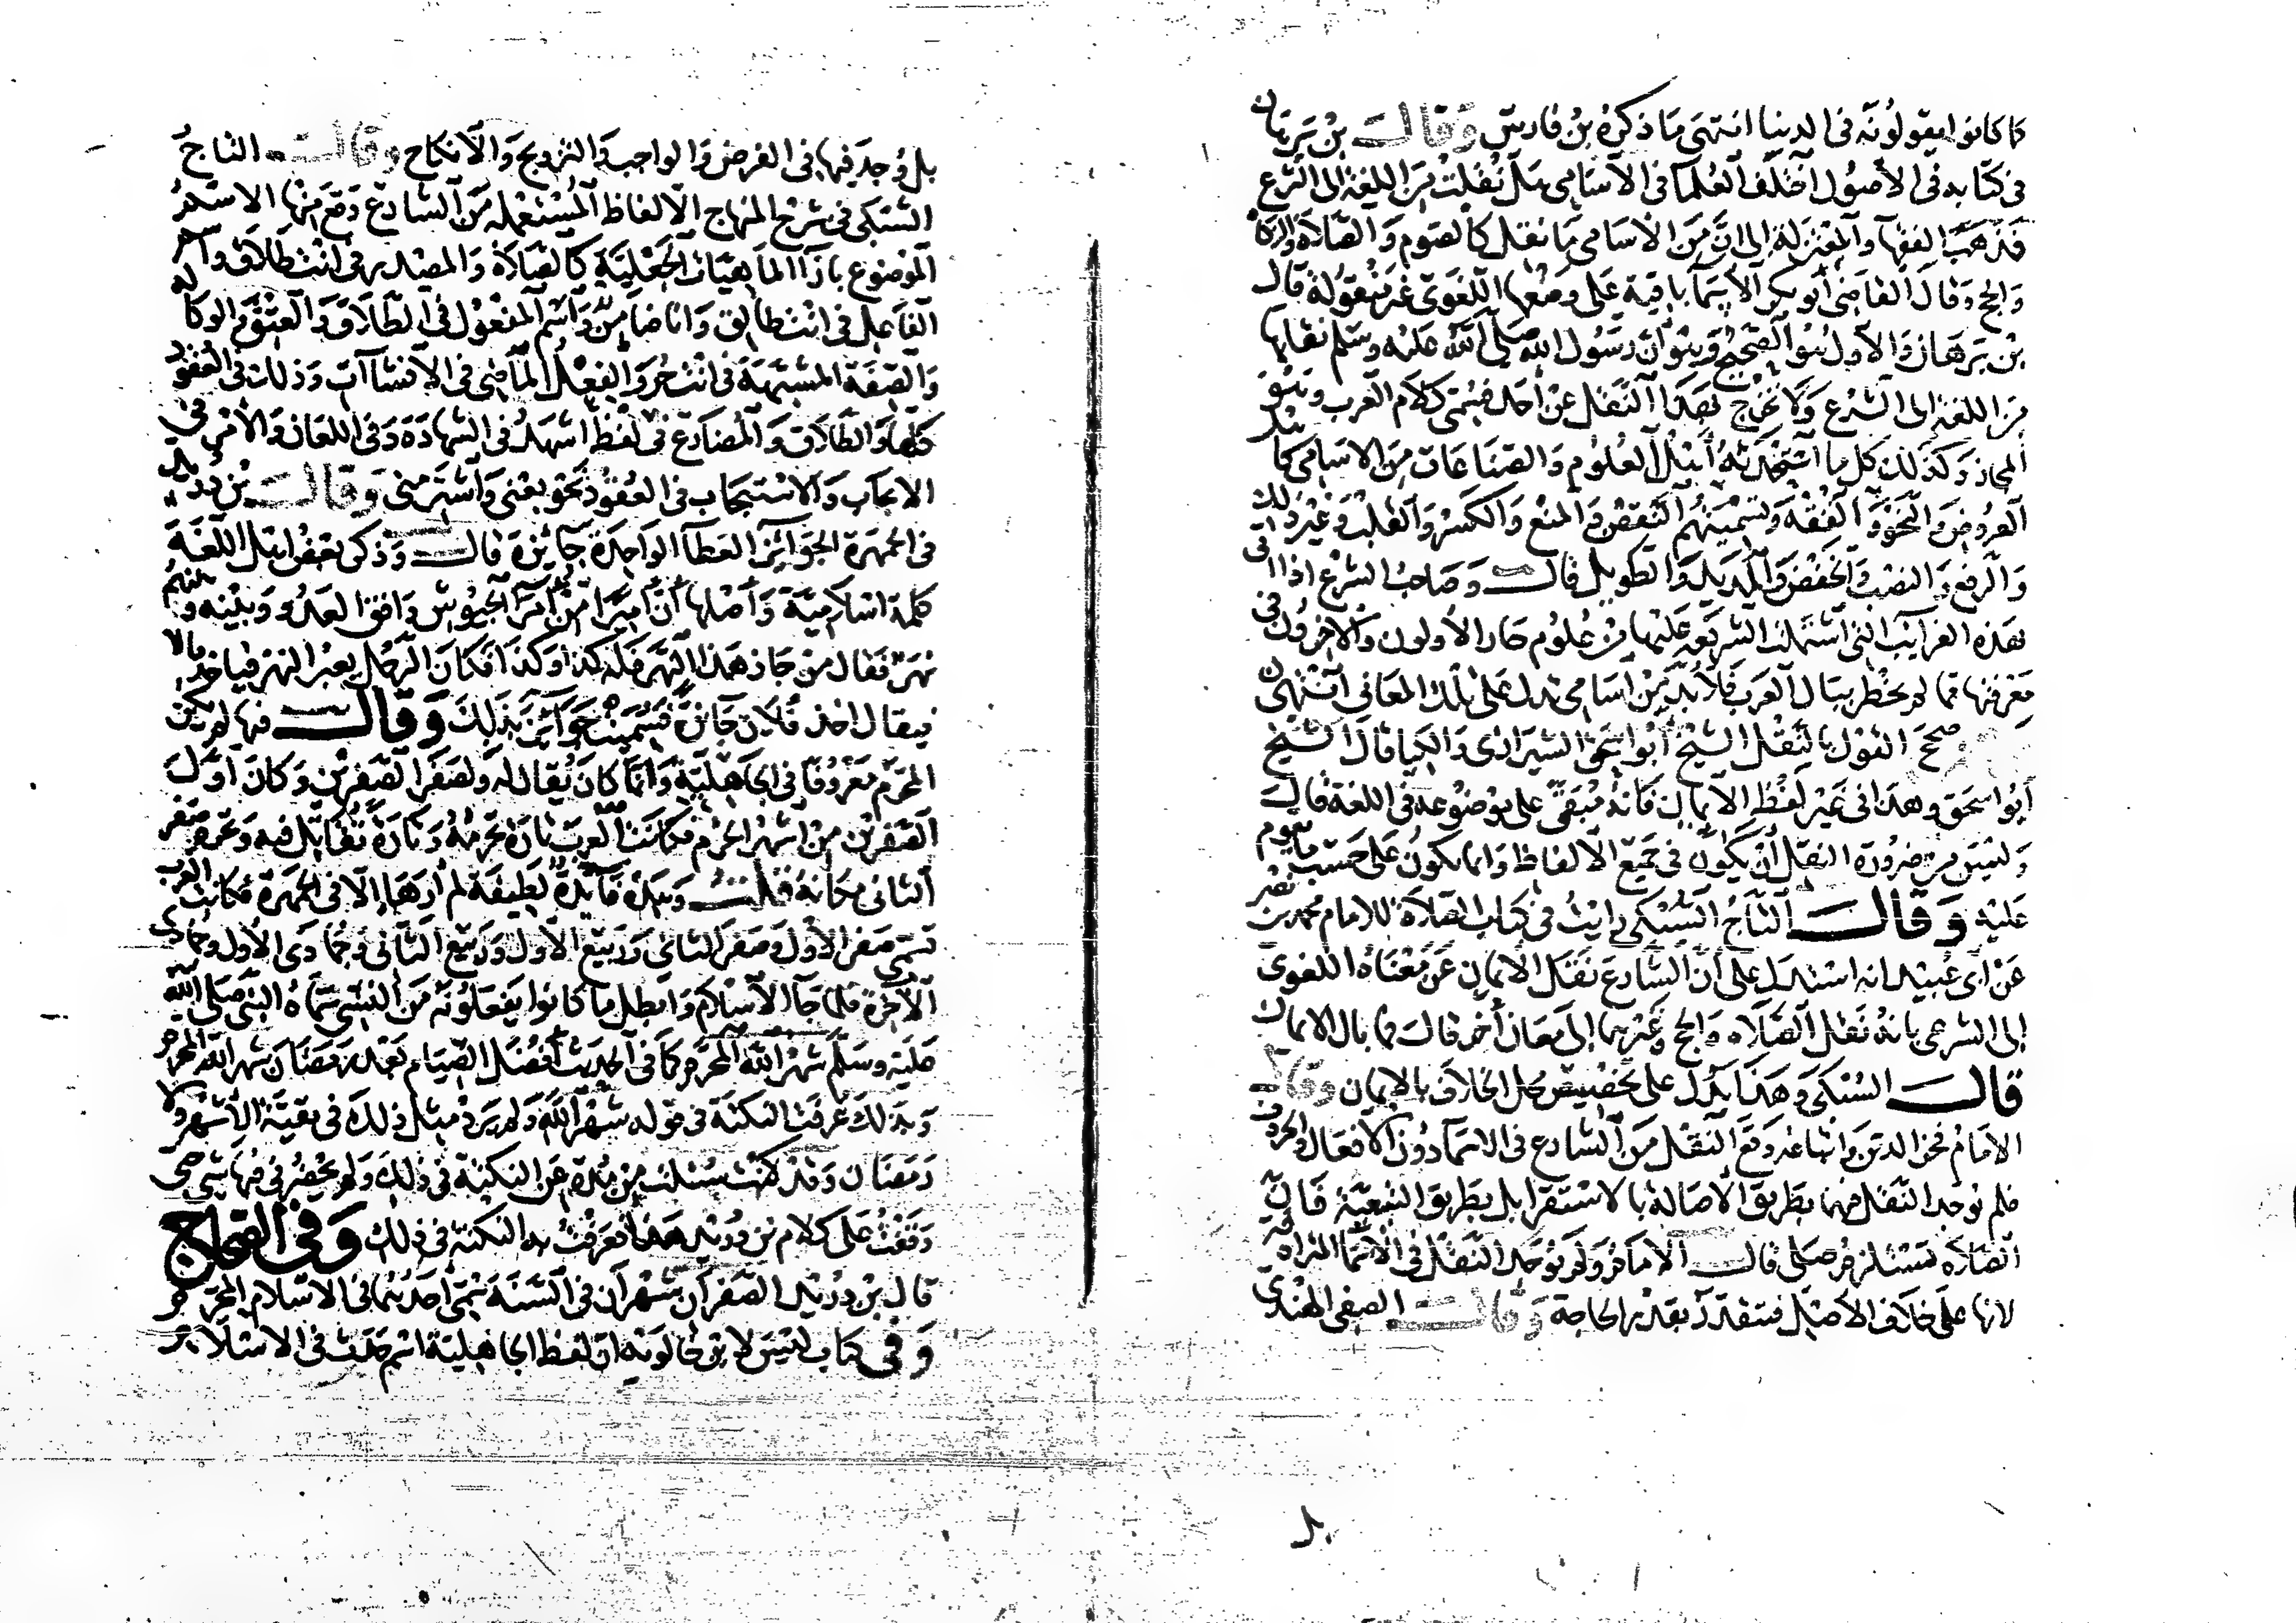 ما كانوا يقولونه فى الدنيا انتهى ما ذكره بن فارس وقالــ بن برهان
فى كتابه فى الأصول اختلف العلما فى الأسامى هل نقلت من اللغة الى الشرع
فذهب الفقها والمعتزلة إلى ان من الأسامى ما نقل كالصوم والصلاة والزكاة
والحج وقال القاضى أبو بكر الأسما باقية على وضعها اللغوى غير منقولة قال
بن برهان والأول هو الصحيح وهو ان رسول الله صلى الله عليه وسلم نقلها
من اللغة إلى الشرع ولا تخرج بهذا النقل عن أحد قسمى كلام العرب وهو
المجاز وكذلك كل ما استحدثه أهل العلوم والصناعات من الاسامى كأهل
العروض والنحو والفقه وتسميتهم النقض والمنع والكسر والقلب وغير ذلك
والرفع والنصب والخفض والمديد والطويل قالــ وصاحب الشرع اذا اتى
بهذه الغرايب التى اشتملت الشريعة عليها من علوم حار الأولون والآخرون فى
معرفتها مما لم يخطر ببال العرب فلا بد من اسامى تدل على تلك المعانى انتهى
صحح القول بالنقل الشيخ أبو اسحق الشيرازى والكيا قال الشيخ
أبو اسحق وهذا فى غير لفظ الأيمان فانه مبقى على موضوعه فى اللغة قالــ
وليس من ضرورة النقل أن يكون فى جميع الألفاظ وانما يكون على حسب ما يقوم
عليه وقالــ التاج السبكى رايت فى كتاب الصلاة للامام محمد بن نصر
عن أبى عبيد انه استدل على أن الشارع نقل الايمان عن معناه اللغوى
إلى الشرعى بانه نقل الصلاه والحج وغيرهما إلى معان أخر قالــ فما بال الايمان
قالــ السبكى وهذا يدل على تخصيص محل الخلاف بالإيمان وقالــ
الامام فخر الدين واتباعه وقع النقل من الشارع فى الاسما دون الأفعال والحروف
فلم يوجد النقل فيهما بطريق الأصالة بالاستقرا بل بطريق التبعية فان
الصلاه تستلزم صلى قالــ الامام ولم يوجد النقل فى الأسما المترادفة
لانها على خلاف الأصل فتتقدر بقدر الحاجة وقالــ الصفى الهندى
بل وجد فيها فى الفرض والواجب والتزويج والانكاح وقالــ التاج
السبكى فى شرح المنهاج الألفاظ المستعمله من الشارع وقع منها الاسم
الموضوع بازا الماهيات الجعلية كالصلاة والمصدر فى انت طلاق واسم
الفاعل فى انت طالق وانا ضامن واسم المفعول فى الطلاق والعتق والوكاله
والصفة المشبهة فى انت حر والفعل الماضى فى الانشاآت وذلك فى العقود
كلها والطلاق والمضارع فى لفظ اشهد فى الشهادة وفى اللعان والأمر فى
الايجاب والاستيجاب فى العقود نحو بعنى واشتر منى وقالــ بن دريد
فى الجمهرة الجوائز العطايا الواحدة جائزة قالــ وذكر بعض اهل اللغة
كلمة اسلامية وأصلها أن أميرا من أمرا الجيوش واقف العدو وبينه وبينهم
نهر فقال من جاز هذا النهر فله كذا وكذا فكان الرجل يعبر النهر فياخذ مالا
فيقال اخذ فلان جائزة فسميت جوائز بذلك وقالــ فيها لم يكن
المحرم معروفا فى الجاهلية وانما كان يقال له ولصفر الصفرين وكان أول
الصفرين من اشهر الحرم فكانت العرب تارة تحرمه وتارة تقاتل فيه وتحرم صفر
الثانى مكانه قلتــ وهذه فائدة لطيفة لم أرها إلا فى الجمهرة فكانت العرب
تسمى صفر الأول وصفر الثانى وربيع الأول وربيع الثانى وجمادى الأول وجمادى
الآخرة فلما جا الأسلام وأبطل ما كانوا يفعلونه من النسى سماه النبى صلى الله
عليه وسلم شهر الله المحرم كما فى الحديث أفضل الصيام بعد رمضان شهر الله المحرم
وبذلك عرفت النكتة فى قوله شهر الله ولم يرد مثل ذلك فى بقية الأشهر ولا
رمضان وقد كنت سئلت من مدة عن النكتة فى ذلك ولم يحضرنى فيها شى حتى
وقفت على كلام بن دريد هذا فعرفت به النكتة فى ذلك وفى الصحاح
قال بن دريد الصفران شهران فى السنة سمى أحدهما فى الاسلام المحرم
وفى كتاب ليس لابن خالويه ان لفظ الجاهلية اسم حدث فى الاسلام